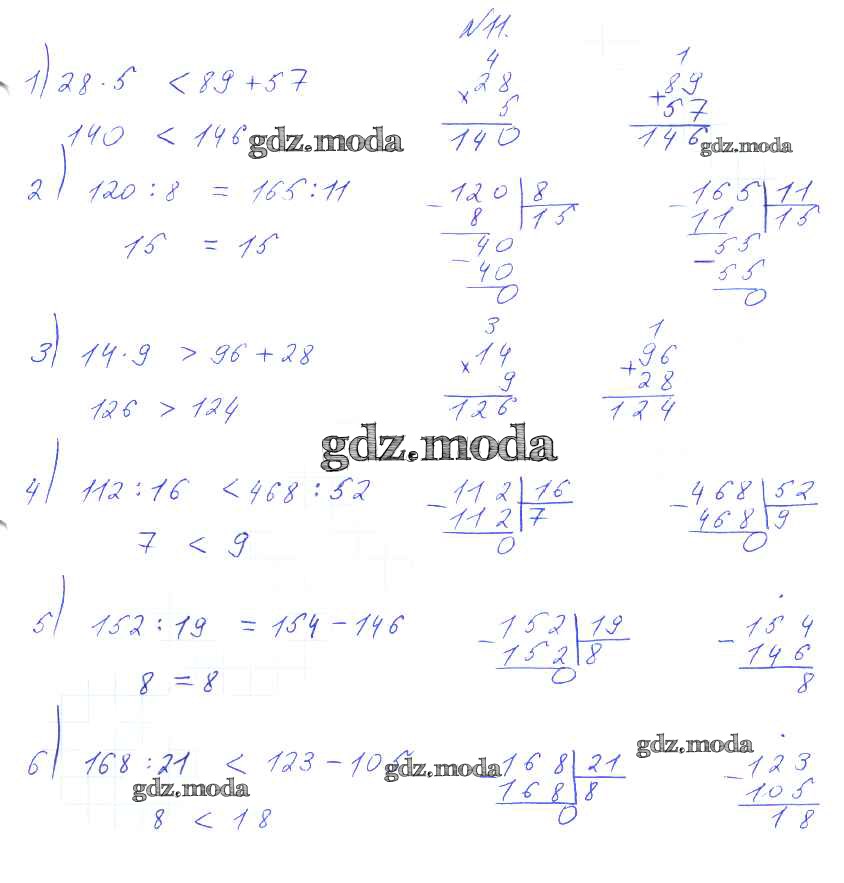 N11.
1) 28 · 5 < 89 + 57
140 < 146
4
× 28
5
140
1
+ 89
57
146
gdz.moda
gdz.moda
2) 120 : 8 = 165 : 11
15 = 15
- 120 | 8
8 | 15
- 40
40
0
- 165 | 11
11 | 15
- 55
55
0
3) 14 · 9 > 96 + 28
126 > 124
3
× 14
9
126
1
+ 96
28
124
gdz.moda
4) 112 : 16 < 468 : 52
7 < 9
- 112 | 16
112 | 7
0
- 468 | 52
468 | 9
0
5) 152 : 19 = 154 - 146
8 = 8
- 152 | 19
152 | 8
0
- 154
146
8
6) 168 : 21 < 123 - 105
8 < 18
- 168 | 21
168 | 8
0
- 123
105
18
gdz.moda
gdz.moda
gdz.moda